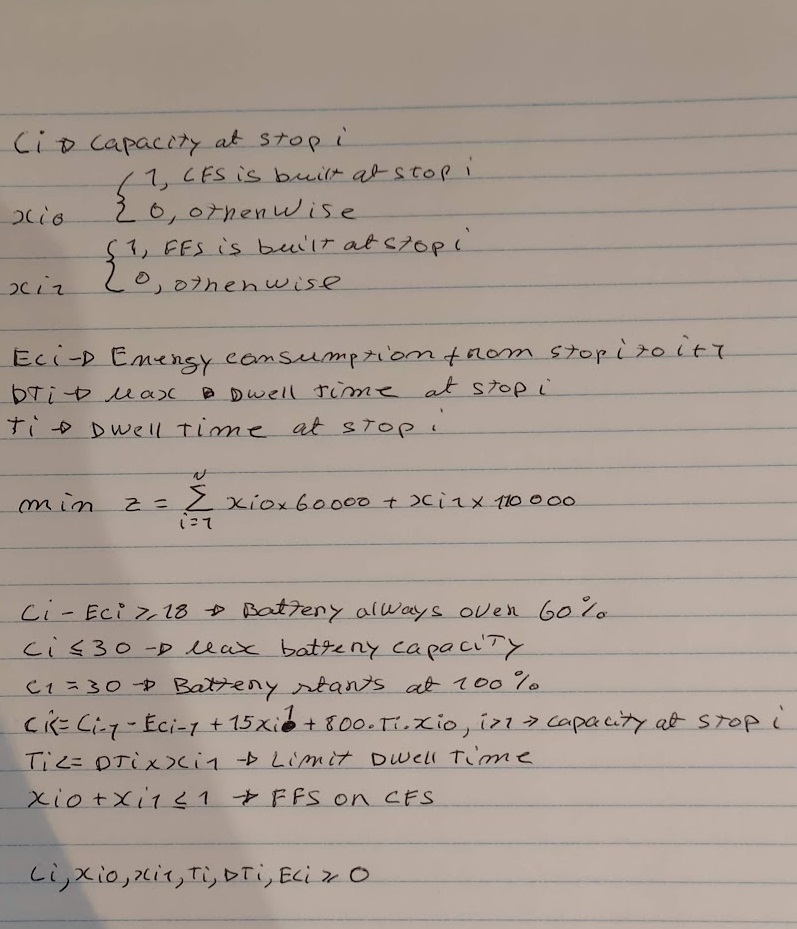 Ci → Capacity at stop i
{ 1, CFS is built at stop i
xi0 { 0, otherwise
{ 1, FFS is built at stop i
xi1 { 0, otherwise
Eci → Energy consumption from stop i to i+1
DTi → Max Dwell time at stop i
Ti → Dwell Time at stop i
min z = N Σ i=1 xi0 x 60000 + xi1 x 110000
Ci - Eci ≥ 18 → Battery always over 60%
Ci ≤ 30 → Max battery capacity
C1 = 30 → Battery starts at 100%
Ci <= Ci-1 - Eci-1 + 15xi1 + 800.Ti.xi0, i>1 → capacity at stop i
Ti <= DTi x xi1 → Limit Dwell Time
xi0 + xi1 ≤ 1 → FFS or CFS
Ci, xi0, xi1, Ti, DTi, Eci ≥ 0